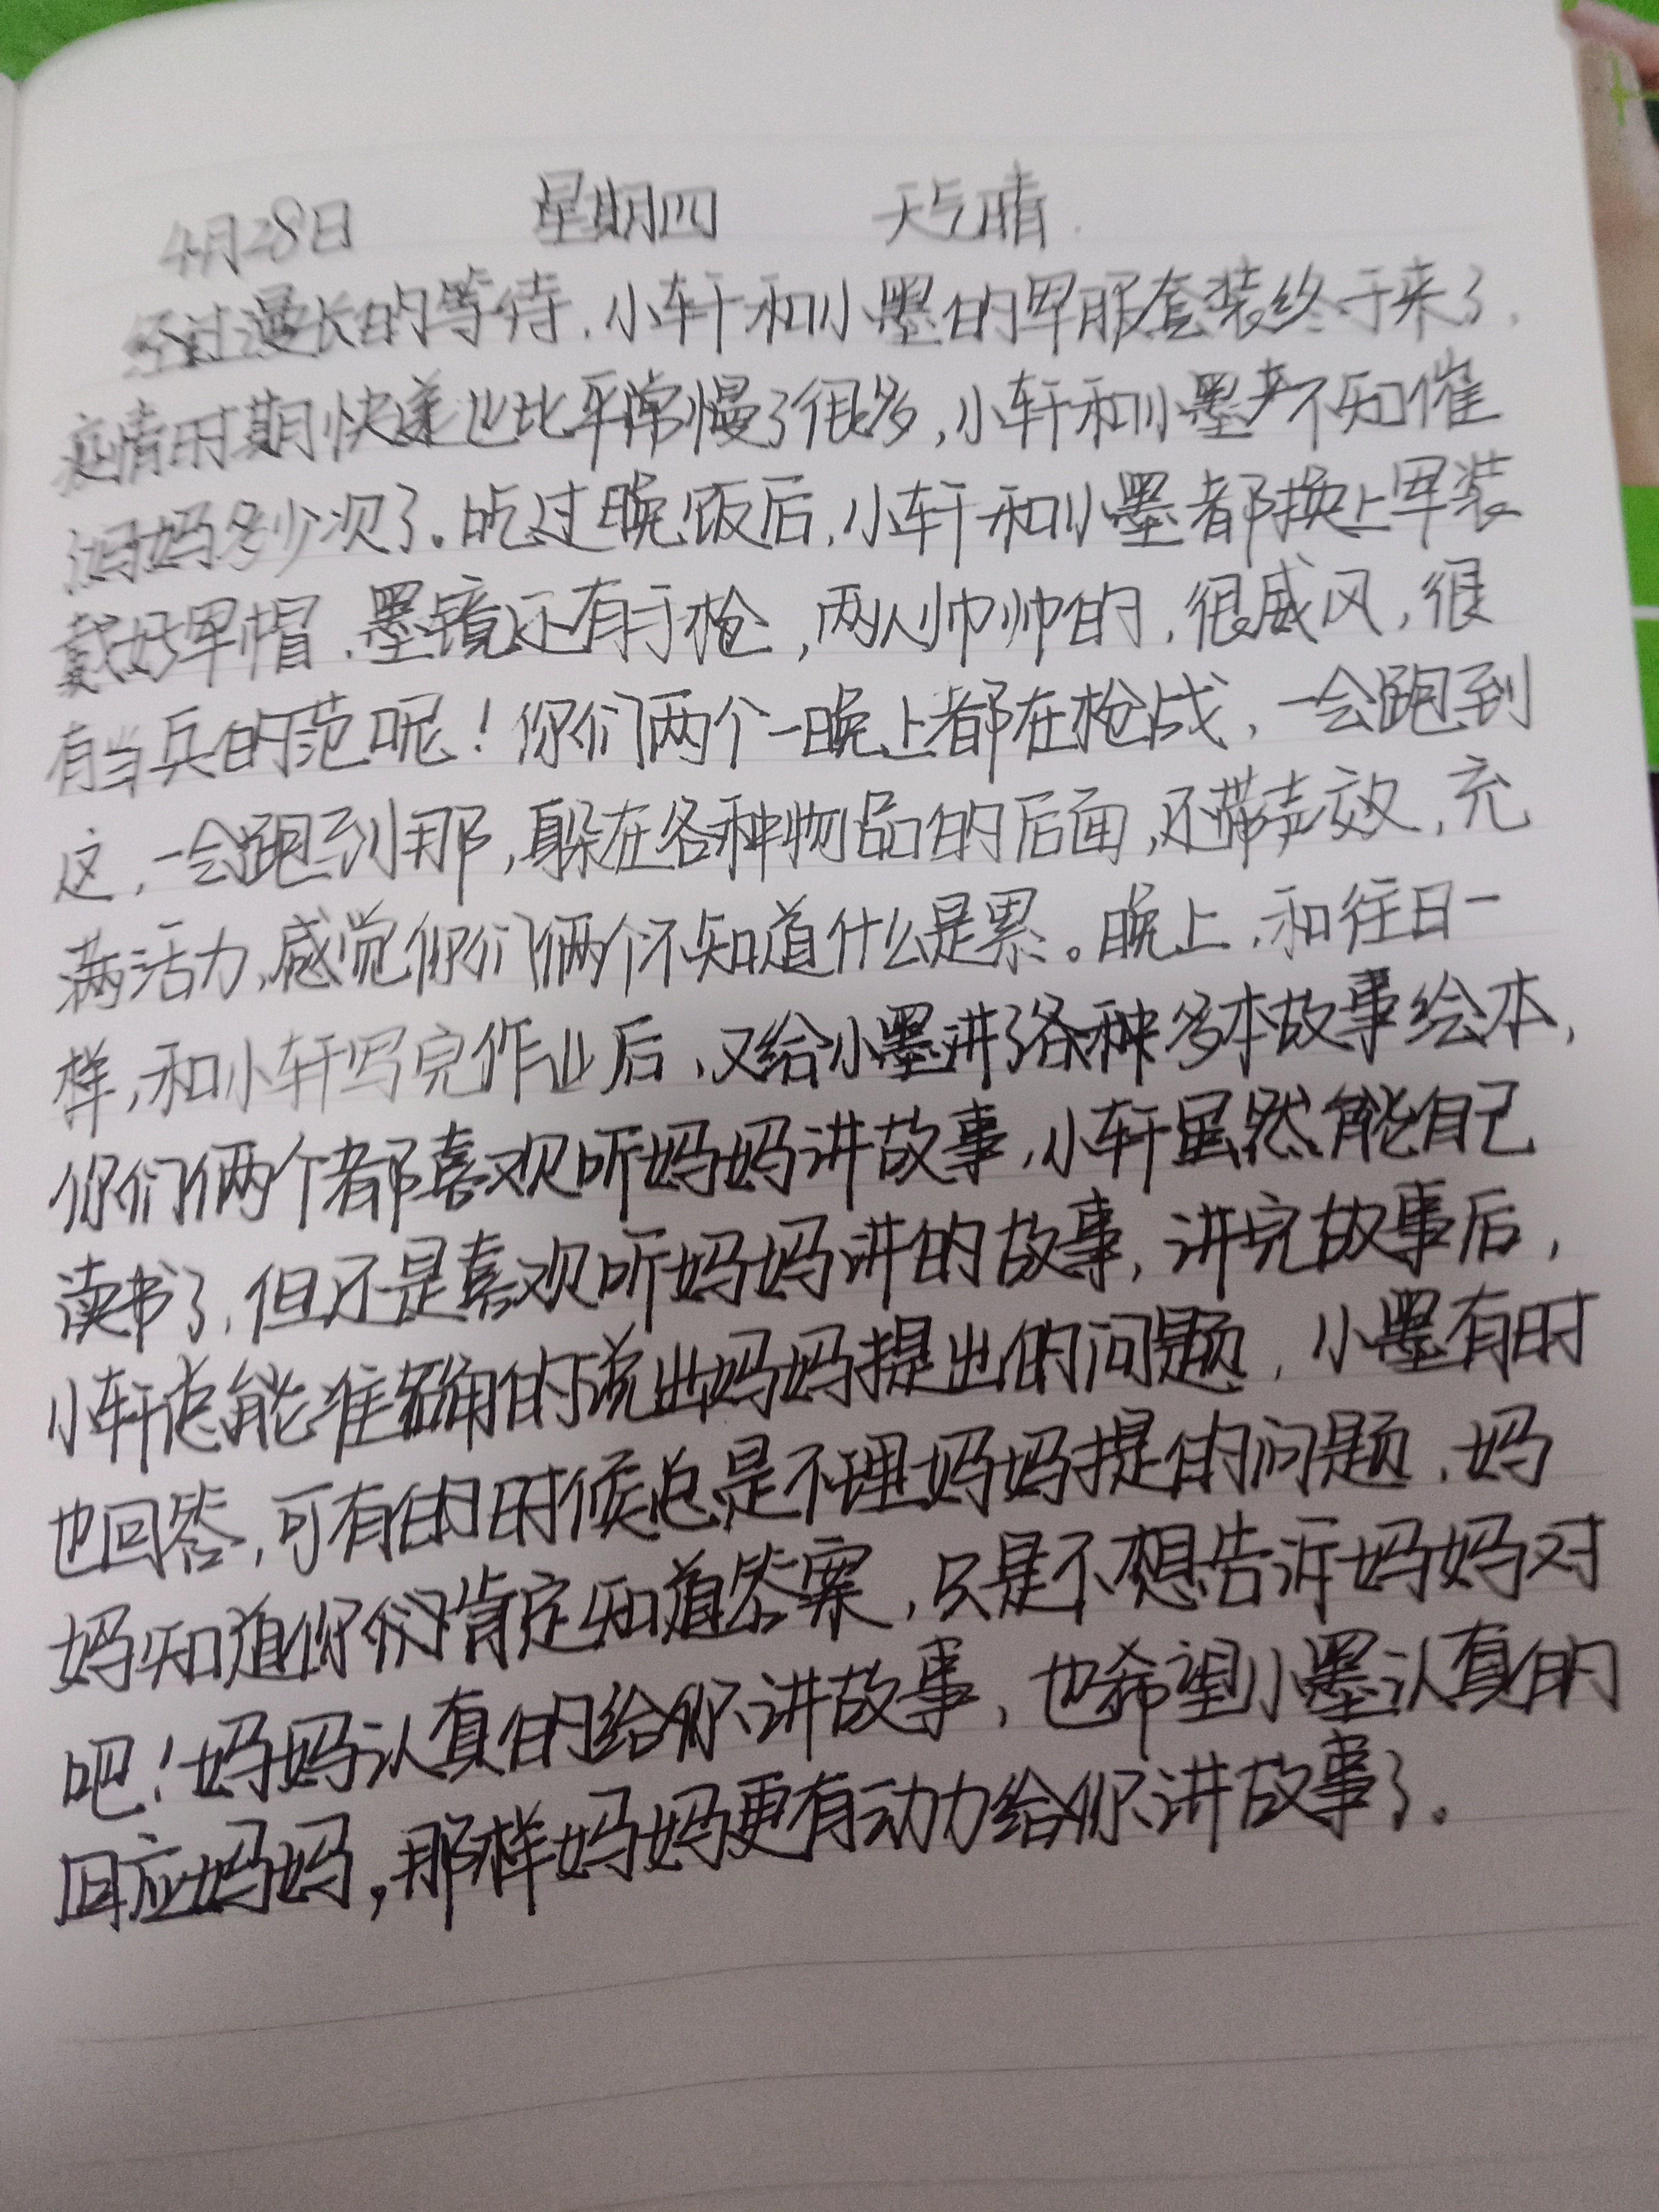 4月28日 星期四 天气晴.
经过漫长的等待,小轩和小墨的军服套装终于来了,
疫情时期快递也比平常慢了很多,小轩和小墨不知催
妈妈多少次了。吃过晚饭后,小轩和小墨都换上军装
戴好军帽、墨镜还有手枪,两人帅帅的,很威风,很
有当兵的范呢!你们两个一晚上都在枪战,一会跑到
这,一会跑到那,躲在各种物品的后面,还带声效,充
满活力,感觉你们俩个不知道什么是累。晚上,和往日一
样,和小轩写完作业后,又给小墨讲了各种多本故事绘本,
你们俩个都喜欢听妈妈讲故事,小轩虽然能自己
读书了,但还是喜欢听妈妈讲的故事,讲完故事后,
小轩总能准确的说出妈妈提出的问题,小墨有时
也回答,可有的时候总是不理妈妈提的问题,妈
妈知道你们肯定知道答案,只是不想告诉妈妈对
吧!妈妈认真的给你讲故事,也希望小墨认真的
回应妈妈,那样妈妈更有动力给你讲故事了。